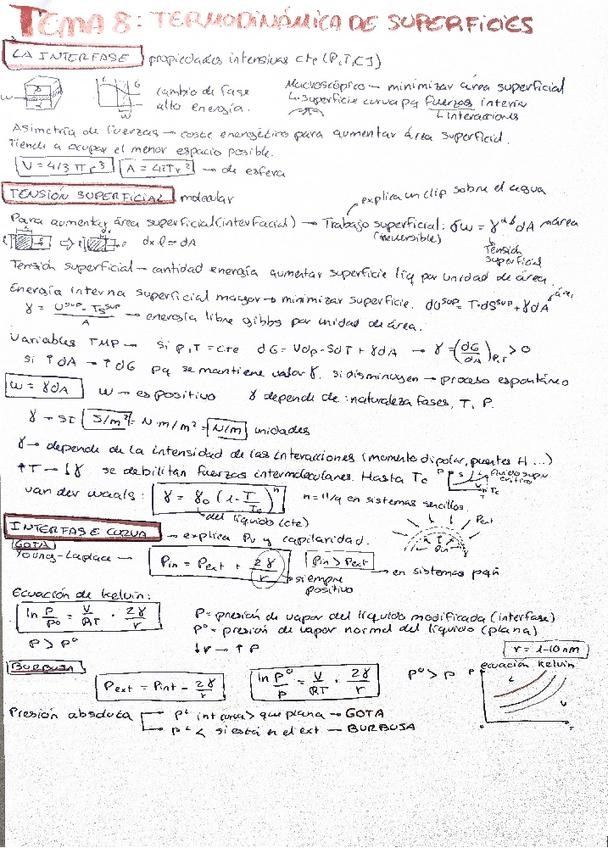 TEMA 8: TERMODINÁMICA DE SUPERFICIES
LA INTERFASE propiedades intensivas cte (P,T,C)
cambio de fase
alta energía.
Macroscópico → minimizar área superficial
↳ superficie curva pq fuerzas interiw
↳ Interacciones
Asimetría de fuerzas → coste energético para aumentar área superficial.
Tiende a ocupar el menor espacio posible.
V = 4/3 π r³ A = 4πr² → de esfera
TENSIÓN SUPERFICIAL molecular
explica un clip sobre el agua
Para aumentar área superficial (interfacial) → Trabajo superficial: δw = γ^αβ dA → área
(reversible)
Tensión superficial
dx·l = dA
Tensión superficial → cantidad energía aumentar superficie líq por unidad de área.
Energía interna superficial mayor → minimizar superficie. dU^sup = T·dS^sup + γdA
γ = (U^sup - TS^sup)/A → energía libre gibbs por unidad de área.
Variables TMP → si P,T = cte dG = Vdp - SdT + γdA → γ = (dG/dA)P,T > 0
si ↑dA → ↑dG pq se mantiene valor γ. si disminuyen → proceso espontáneo
w = γdA w → es positivo γ depende de: naturaleza fases, T, P.
γ → SI J/m² = N·m/m² = N/m unidades
γ → depende de la intensidad de las interacciones (momento dipolar, puentes H...)
↑T → ↓γ se debilitan fuerzas intermoleculares. Hasta Tc
fluido supercrítico
van der waals: γ = γ₀ (1 - T/Tc)^n n = 11/9 en sistemas sencillos.
del líquido (cte)
INTERFASE CURVA → explica Pv y capilaridad.
Pext
Pin
GOTA
Young-Laplace → Pin = Pext + 2γ/r Pin > Pext → en sistemas pqñ
siempre positivo
Ecuación de Kelvin:
ln P/P° = V/RT · 2γ/r
P = presión de vapor del líquido modificada (interfase)
P° = presión de vapor normal del líquido (plana)
P > P°
↓r → ↑P
r = 1-10nm
BURBUJA
Pext = Pint - 2γ/r ln P°/P = V/RT · 2γ/r P° > P
ecuación Kelvin
P
L
V
T
Presión absoluta
P^L int curva > que plana → GOTA
P^L < si está en el ext → BURBUJA